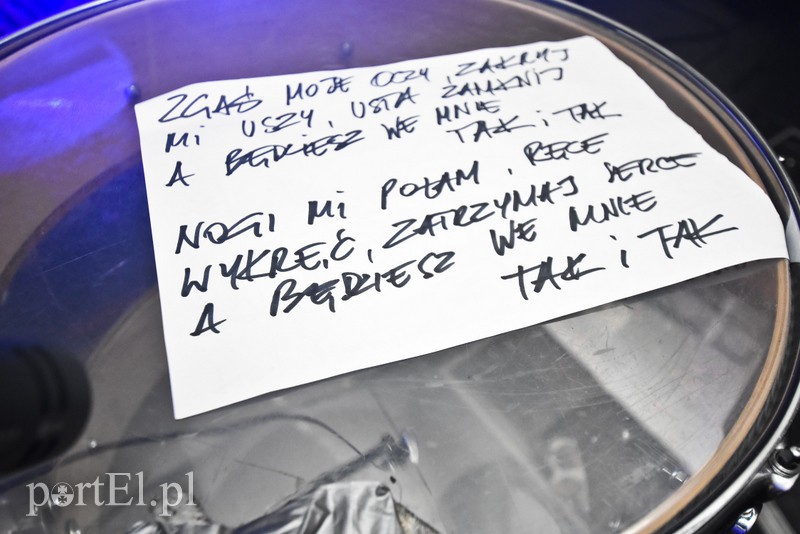 ZGAŚ MOJE OCZY, ZAKRYJ
MI USZY, USTA ZAMKNIJ
A BĘDZIESZ WE MNIE
TAK i TAK
NOGI MI POŁAM, RĘCE
WYKRĘĆ, ZATRZYMAJ SERCE
A BĘDZIESZ WE MNIE
TAK i TAK
portEl.pl